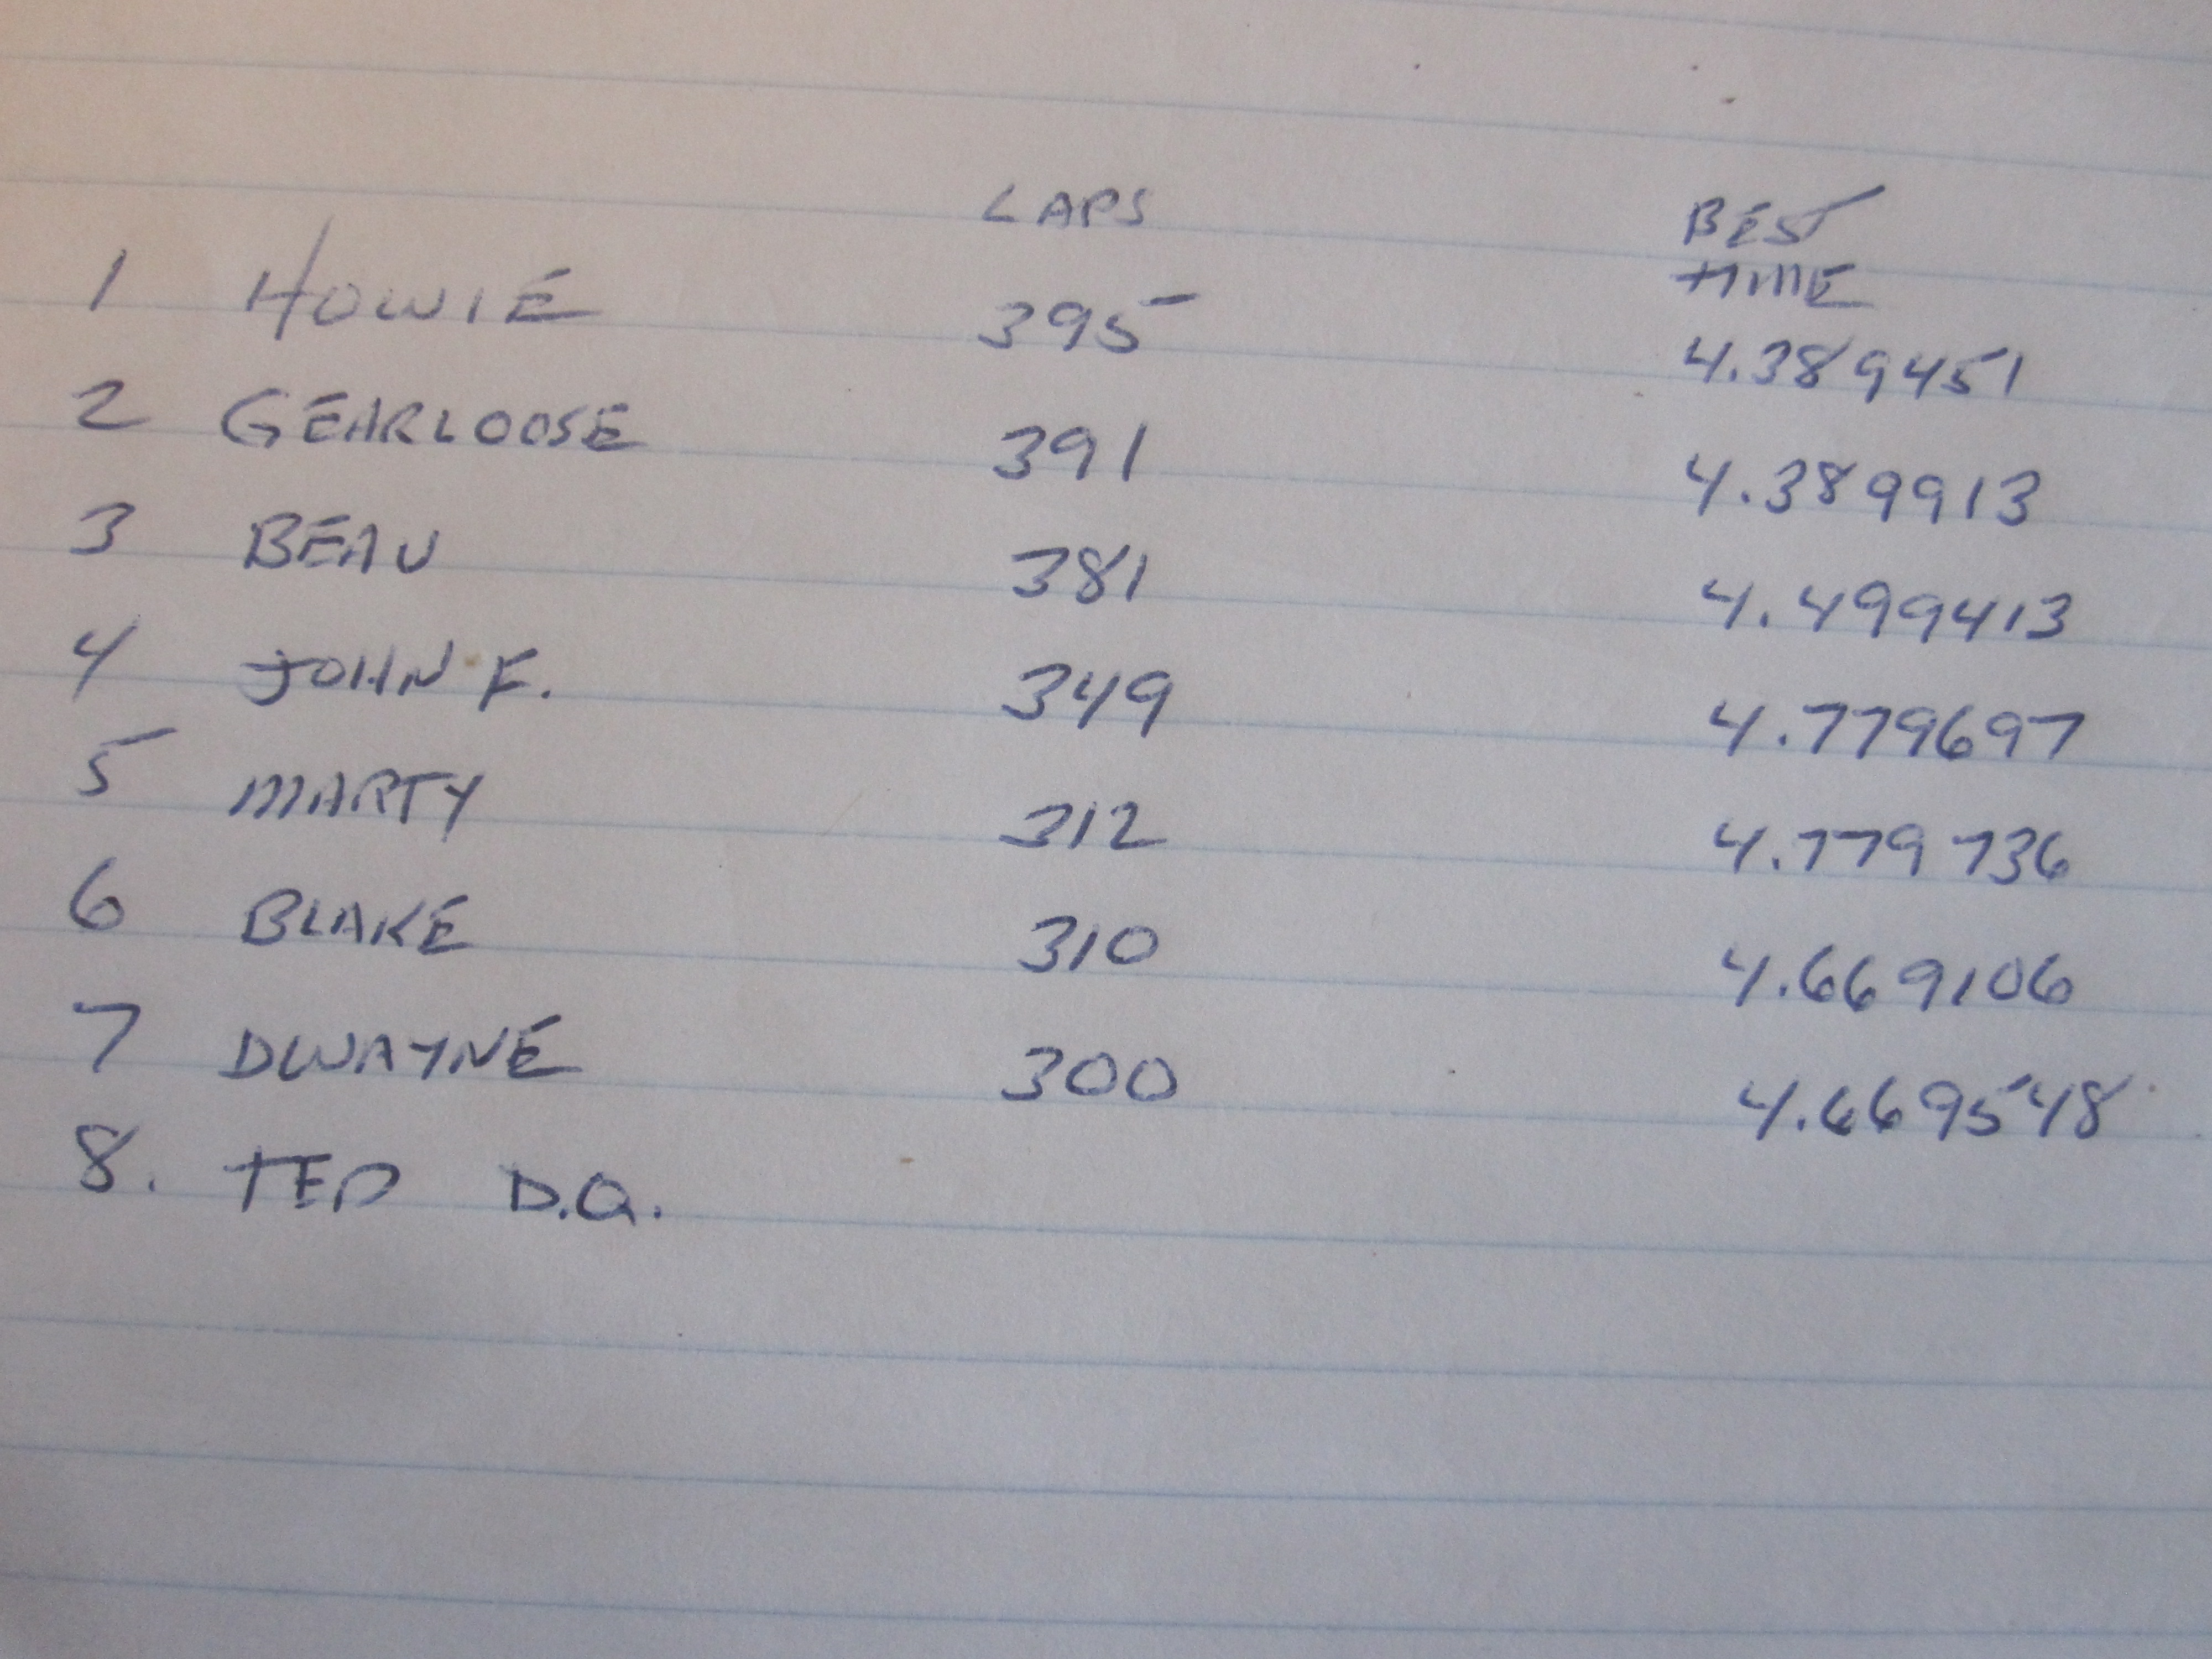 LAPS BEST
TIME
1 HOWIE 395 4.389451
2 GEARLOOSE 391 4.389913
3 BEAU 381 4.499413
4 JOHN F. 349 4.779697
5 MARTY 312 4.779736
6 BLAKE 310 4.669106
7 DWAYNE 300 4.669548
8. TED D.Q.